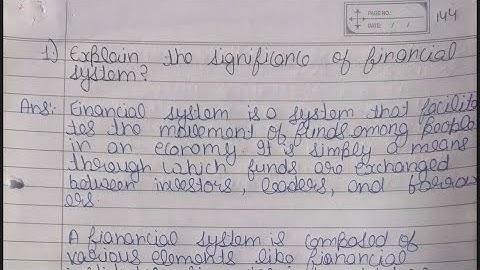 PAGE NO.:
DATE: / /
144
1) Explain the significance of financial
system?
Ans:- Financial system is a system that facilita
tes the movement of funds among people
in an economy. It is simply a means
through which funds are exchanged
between investors, leaders, and borrow
ers.
A financial system is composed of
various elements like financial